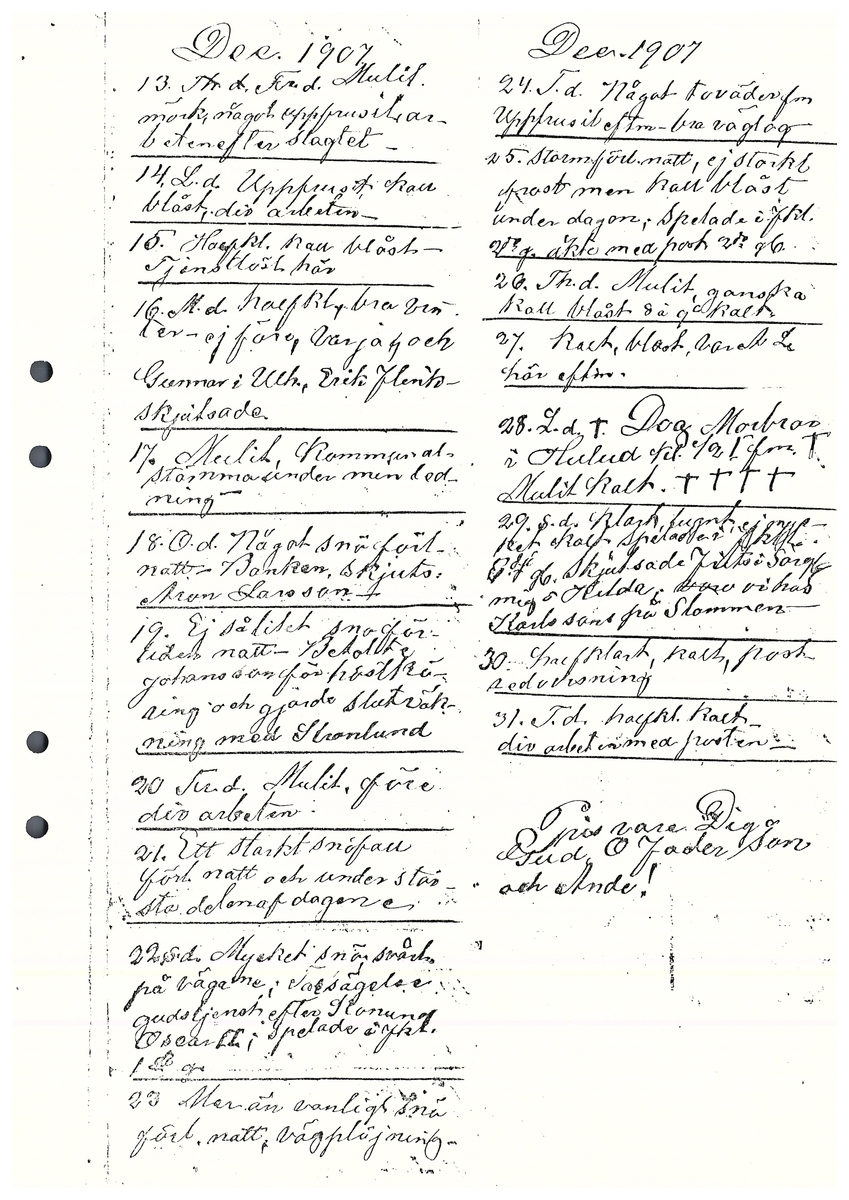 Dec. 1907
13. Th.d. Frd. Mulit.
mörk, något uppfrusit, ar-
beten efter slagtet –
14. L.d. Uppfrusit, kall
blåst, div arbeten –
15. Halfkl. kall blåst –
Tjenstlöst här
16. M.d. halfkl, bra vin-
ter – ej före,
Gunnar i Ulh, Erik
skjutsade.
17. Mulit, Kommunal-
stämma under min led-
ning –
18. O.d. Något snö förl.
natt – Banken, skjuts:
Aron Larsson –
19. Ej så litet snö för-
liden natt – Betalte
Johansson för höstkö-
ring och gjorde sluträk-
ning med Stronlund
20 Fr.d. Mulit, före
div arbeten.
21. Ett starkt snöfall
förl. natt och under stör-
sta delen af dagen
22. S.d. Mycket snö, svårt
på vägarne; Tacksägelse
gudstjenst efter Konung
Oscar II; spelade i fkl.
1sta g.
23 Mer än vanligt snö
förl. natt, vägplöjning –
Dec. 1907
24. T.d. Något toväder fm
Uppfrusit eftm – bra väglag
25. Storm förl. natt, ej starkt
frost men kall blåst
under dagen; Spelade i fkl.
2dra g. åkte med post
26. Th.d. Mulit, ganska
kall blåst så kallt
27. Kallt, blåst, varet
här eftm.
28. L.d. †. Dog Morbror
i Hulud kl. 1/2 1 fm. †.
Mulit kallt. † † † †
29. S.d. Klart, lugnt, ej myc-
ket kallt spelade i fkl.
skjutsade
mig o Hilda; voro vi hos
Karlssons på Stommen
30. halfklart, kallt, post-
redovisning
31. T.d. halfkl. kallt
div arbeten med posten –
Pris vare Dig
Gud, O Fader Son
och Ande!